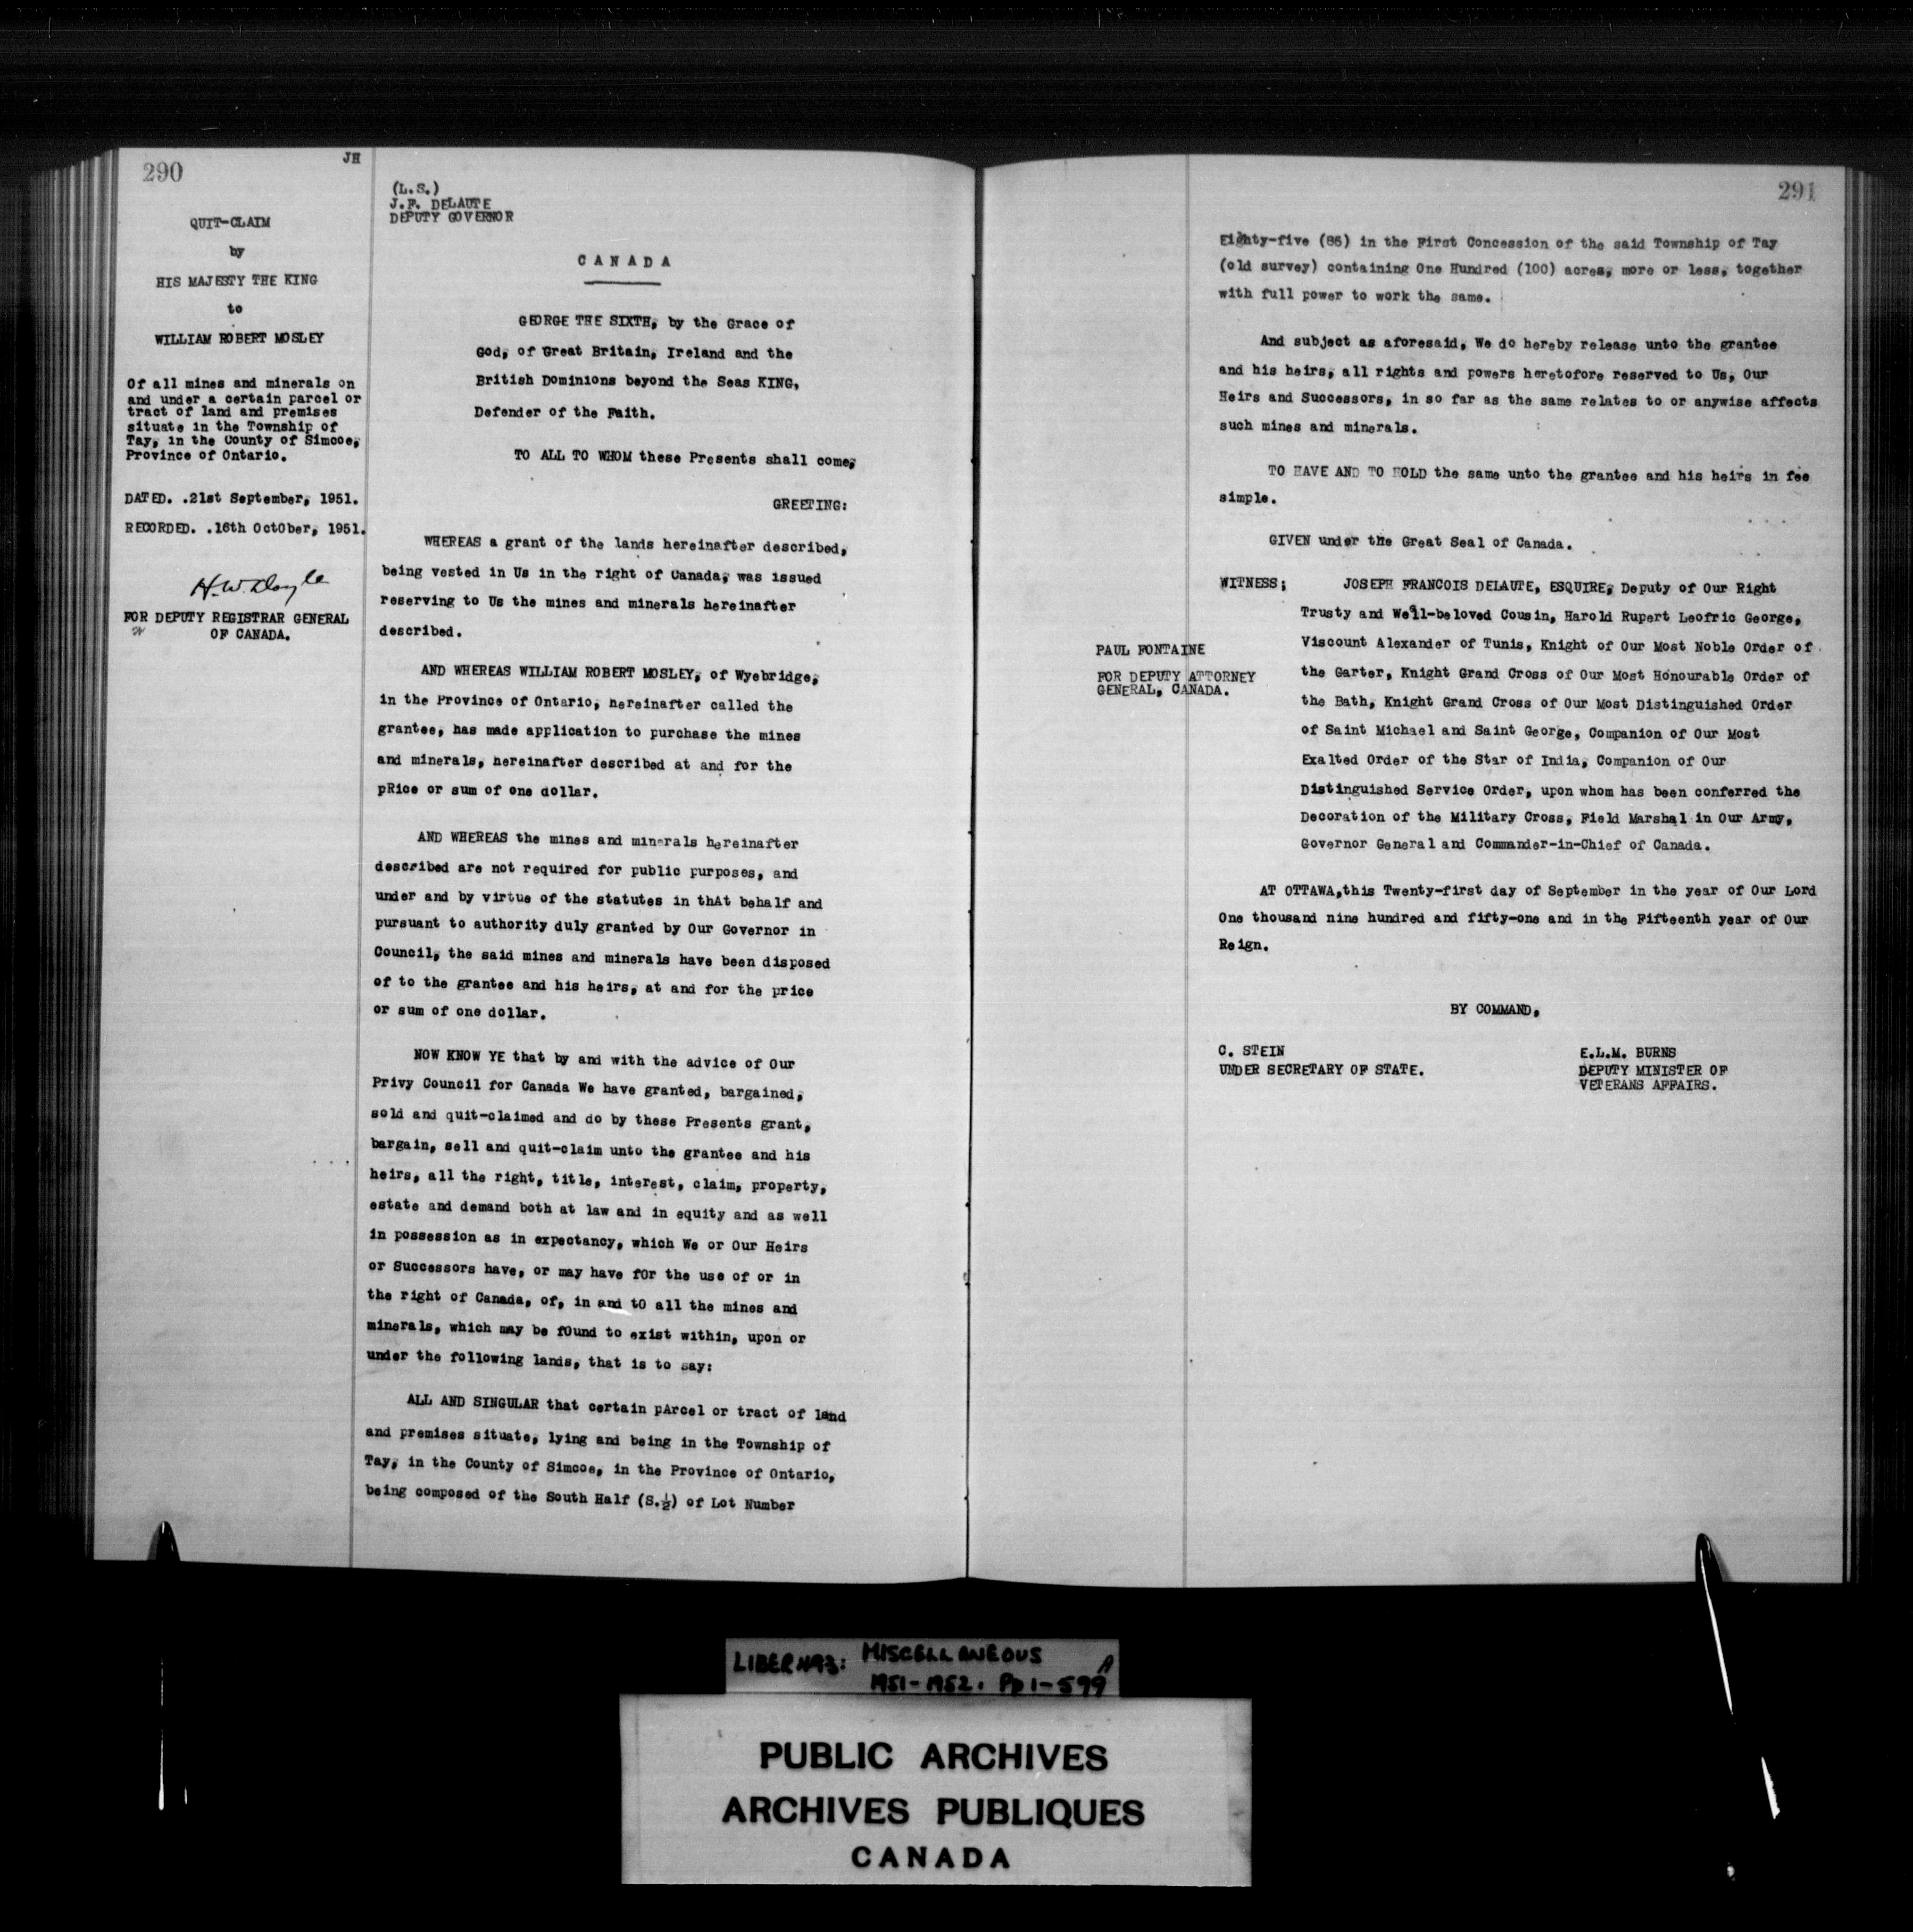 290
JH
QUIT-CLAIM
by
HIS MAJESTY THE KING
to
WILLIAM ROBERT MOSLEY
Of all mines and minerals on
and under a certain parcel or
tract of land and premises
situate in the Township of
Tay, in the County of Simcoe,
Province of Ontario.
DATED. .21st September, 1951.
RECORDED. .16th OctOber, 1951.
H.W. Doyle
FOR DEPUTY REGISTRAR GENERAL
OF CANADA.
(L.S.)
J.F. DELAUTE
DEPUTY GOVERNOR
CANADA
GEORGE THE SIXTH, by the Grace of
God, of Great Britain, Ireland and the
British Dominions beyond the Seas KING,
Defender of the Faith.
TO ALL TO WHOM these Presents shall come,
GREETING:
WHEREAS a grant of the lands hereinafter described,
being vested in Us in the right of Canada, was issued
reserving to Us the mines and minerals hereinafter
described.
AND WHEREAS WILLIAM ROBERT MOSLEY, of Wyebridge,
in the Province of Ontario, hereinafter called the
grantee, has made application to purchase the mines
and minerals, hereinafter described at and for the
pRice or sum of one dollar.
AND WHEREAS the mines and minerals hereinafter
described are not required for public purposes, and
under and by virtue of the statutes in thAt behalf and
pursuant to authority duly granted by Our Governor in
Council, the said mines and minerals have been disposed
of to the grantee and his heirs, at and for the price
or sum of one dollar.
NOW KNOW YE that by and with the advice of Our
Privy Council for Canada We have granted, bargained,
sold and quit-claimed and do by these Presents grant,
bargain, sell and quit-claim unto the grantee and his
heirs, all the right, title, interest, claim, property,
estate and demand both at law and in equity and as well
in possession as in expectancy, which We or Our Heirs
or Successors have, or may have fOr the use of or in
the right of Canada, of, in and tO all the mines and
minerals, which may be fOund to exist within, upon or
under the following lands, that is to say:
ALL AND SINGULAR that certain pArcel or tract of land
and premises situate, lying and being in the Township of
Tay, in the County of Simcoe, in the Province of Ontario,
being composed of the South Half (S.½) of Lot Number
291
Eighty-five (85) in the First Concession of the said Township of Tay
(old survey) containing One Hundred (100) acres, more or less, together
with full power to work the same.
And subject as aforesaid, We do hereby release unto the grantee
and his heirs, all rights and powers heretofore reserved to Us, Our
Heirs and Successors, in so far as the same relates to or anywise affects
such mines and minerals.
TO HAVE AND TO HOLD the same unto the grantee and his heirs in fee
simple.
GIVEN under the Great Seal of Canada.
WITNESS; JOSEPH FRANCOIS DELAUTE, ESQUIRE, Deputy of Our Right
Trusty and Well-beloved Cousin, Harold Rupert Leofric George,
Viscount Alexander of Tunis, Knight of Our Most Noble Order of
the Garter, Knight Grand Cross of Our Most Honourable Order of
the Bath, Knight Grand Cross of Our Most Distinguished Order
of Saint Michael and Saint George, Companion of Our Most
Exalted Order of the Star of India, Companion of Our
Distinguished Service Order, upon whom has been conferred the
Decoration of the Military Cross, Field Marshal in Our Army,
Governor General and Commander-in-Chief of Canada.
PAUL FONTAINE
FOR DEPUTY ATTORNEY
GENERAL, CANADA.
AT OTTAWA,this Twenty-first day of September in the year of Our Lord
One thousand nine hundred and fifty-one and in the Fifteenth year of Our
Reign.
BY COMMAND,
C. STEIN
UNDER SECRETARY OF STATE.
E.L.M. BURNS
DEPUTY MINISTER OF
VETERANS AFFAIRS.
LIBER 493: MISCELLANEOUS A
1951-1952. Pp 1-599
PUBLIC ARCHIVES
ARCHIVES PUBLIQUES
CANADA